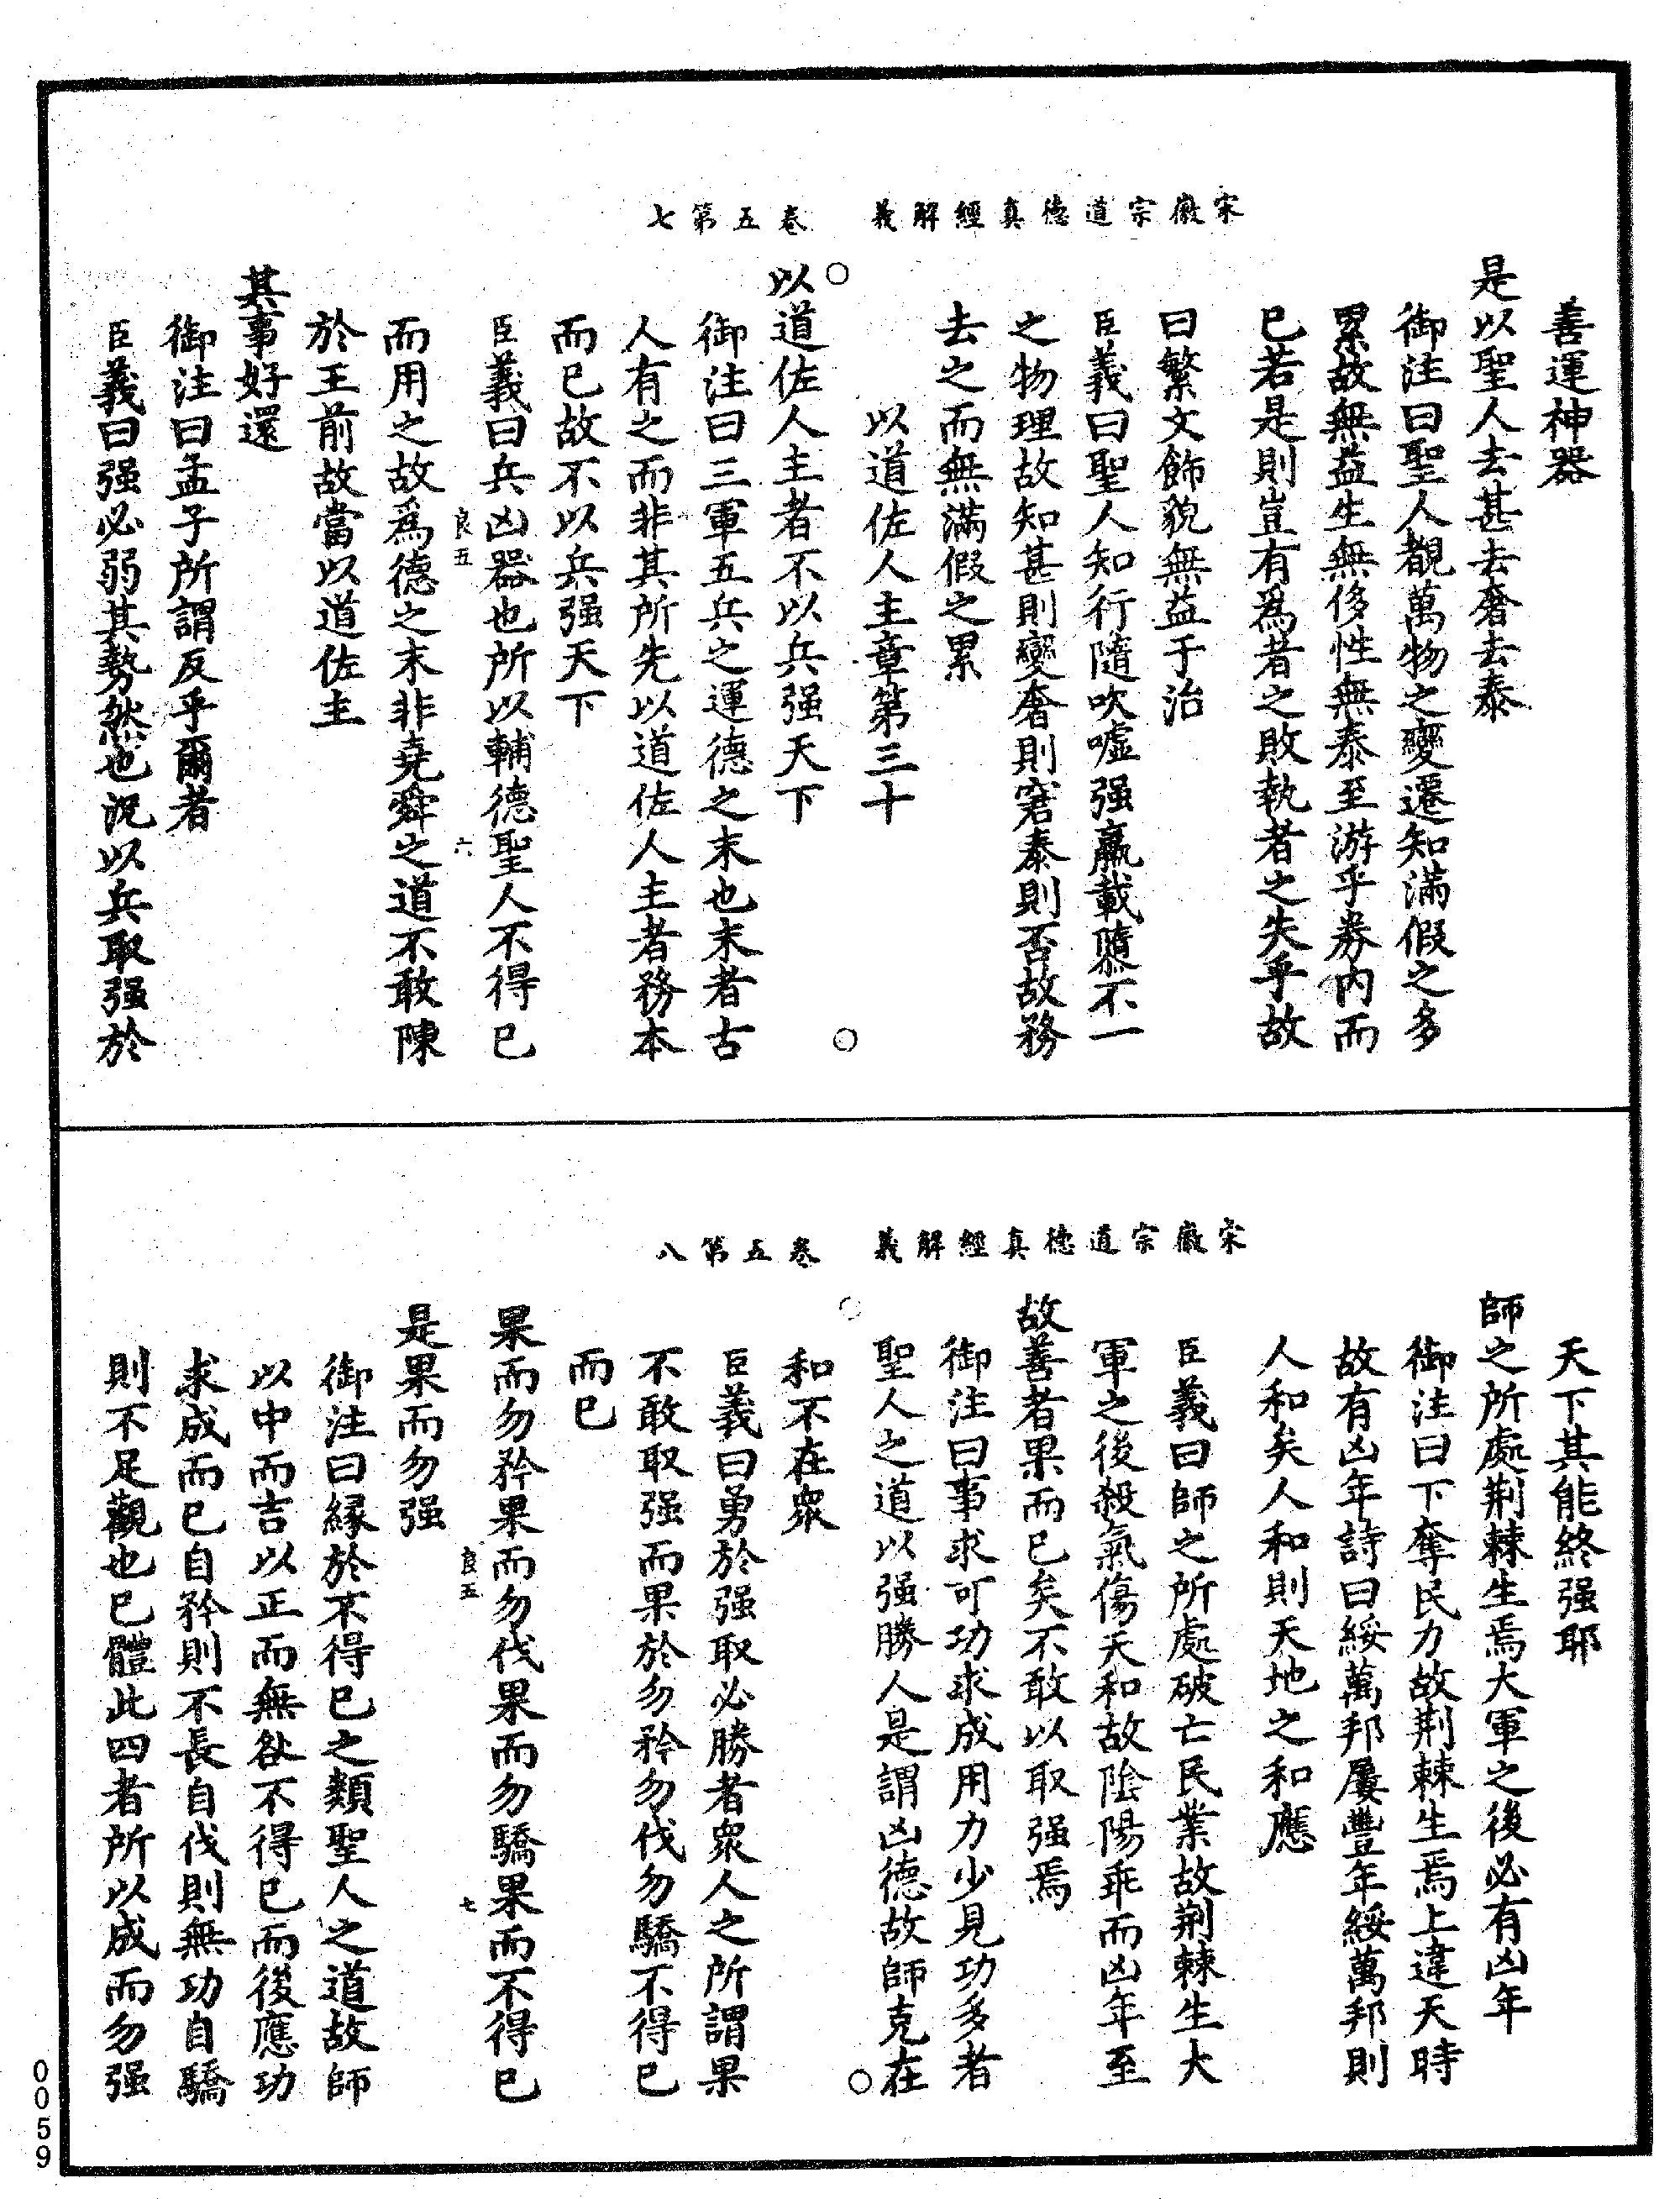 宋徽宗道德真經解義　卷五第七
善運神器
是以聖人去甚去奢去泰
御注曰聖人覩萬物之變遷知滿假之多
累故無益生無侈性無泰至游乎券內而
已若是則豈有爲者之敗執者之失乎故
曰繁文飾貌無益于治
臣義曰聖人知行隨吹噓强羸載隳不一
之物理故知甚則變奢則窘泰則否故務
去之而無滿假之累
以道佐人主章第三十
以道佐人主者不以兵强天下
御注曰三軍五兵之運德之末也末者古
人有之而非其所先以道佐人主者務本
而已故不以兵强天下
臣義曰兵凶器也所以輔德聖人不得已
良五　六
而用之故爲德之末非堯舜之道不敢陳
於王前故當以道佐主
其事好還
御注曰孟子所謂反乎爾者
臣義曰强必弱其勢然也況以兵取强於
宋徽宗道德真經解義　卷五第八
天下其能終强耶
師之所處荆棘生焉大軍之後必有凶年
御注曰下奪民力故荆棘生焉上違天時
故有凶年詩曰綏萬邦屢豐年綏萬邦則
人和矣人和則天地之和應
臣義曰師之所處破亡民業故荆棘生大
軍之後殺氣傷天和故陰陽乖而凶年至
故善者果而已矣不敢以取强焉
御注曰事求可功求成用力少見功多者
聖人之道以强勝人是謂凶德故師克在
和不在眾
臣義曰勇於强取必勝者眾人之所謂果
不敢取强而果於勿矜勿伐勿驕不得已
而已
果而勿矜果而勿伐果而勿驕果而不得已
良五　七
是果而勿强
御注曰緣於不得已之類聖人之道故師
以中而吉以正而無咎不得已而後應功
求成而已自矜則不長自伐則無功自驕
則不足觀也已體此四者所以成而勿强
0059